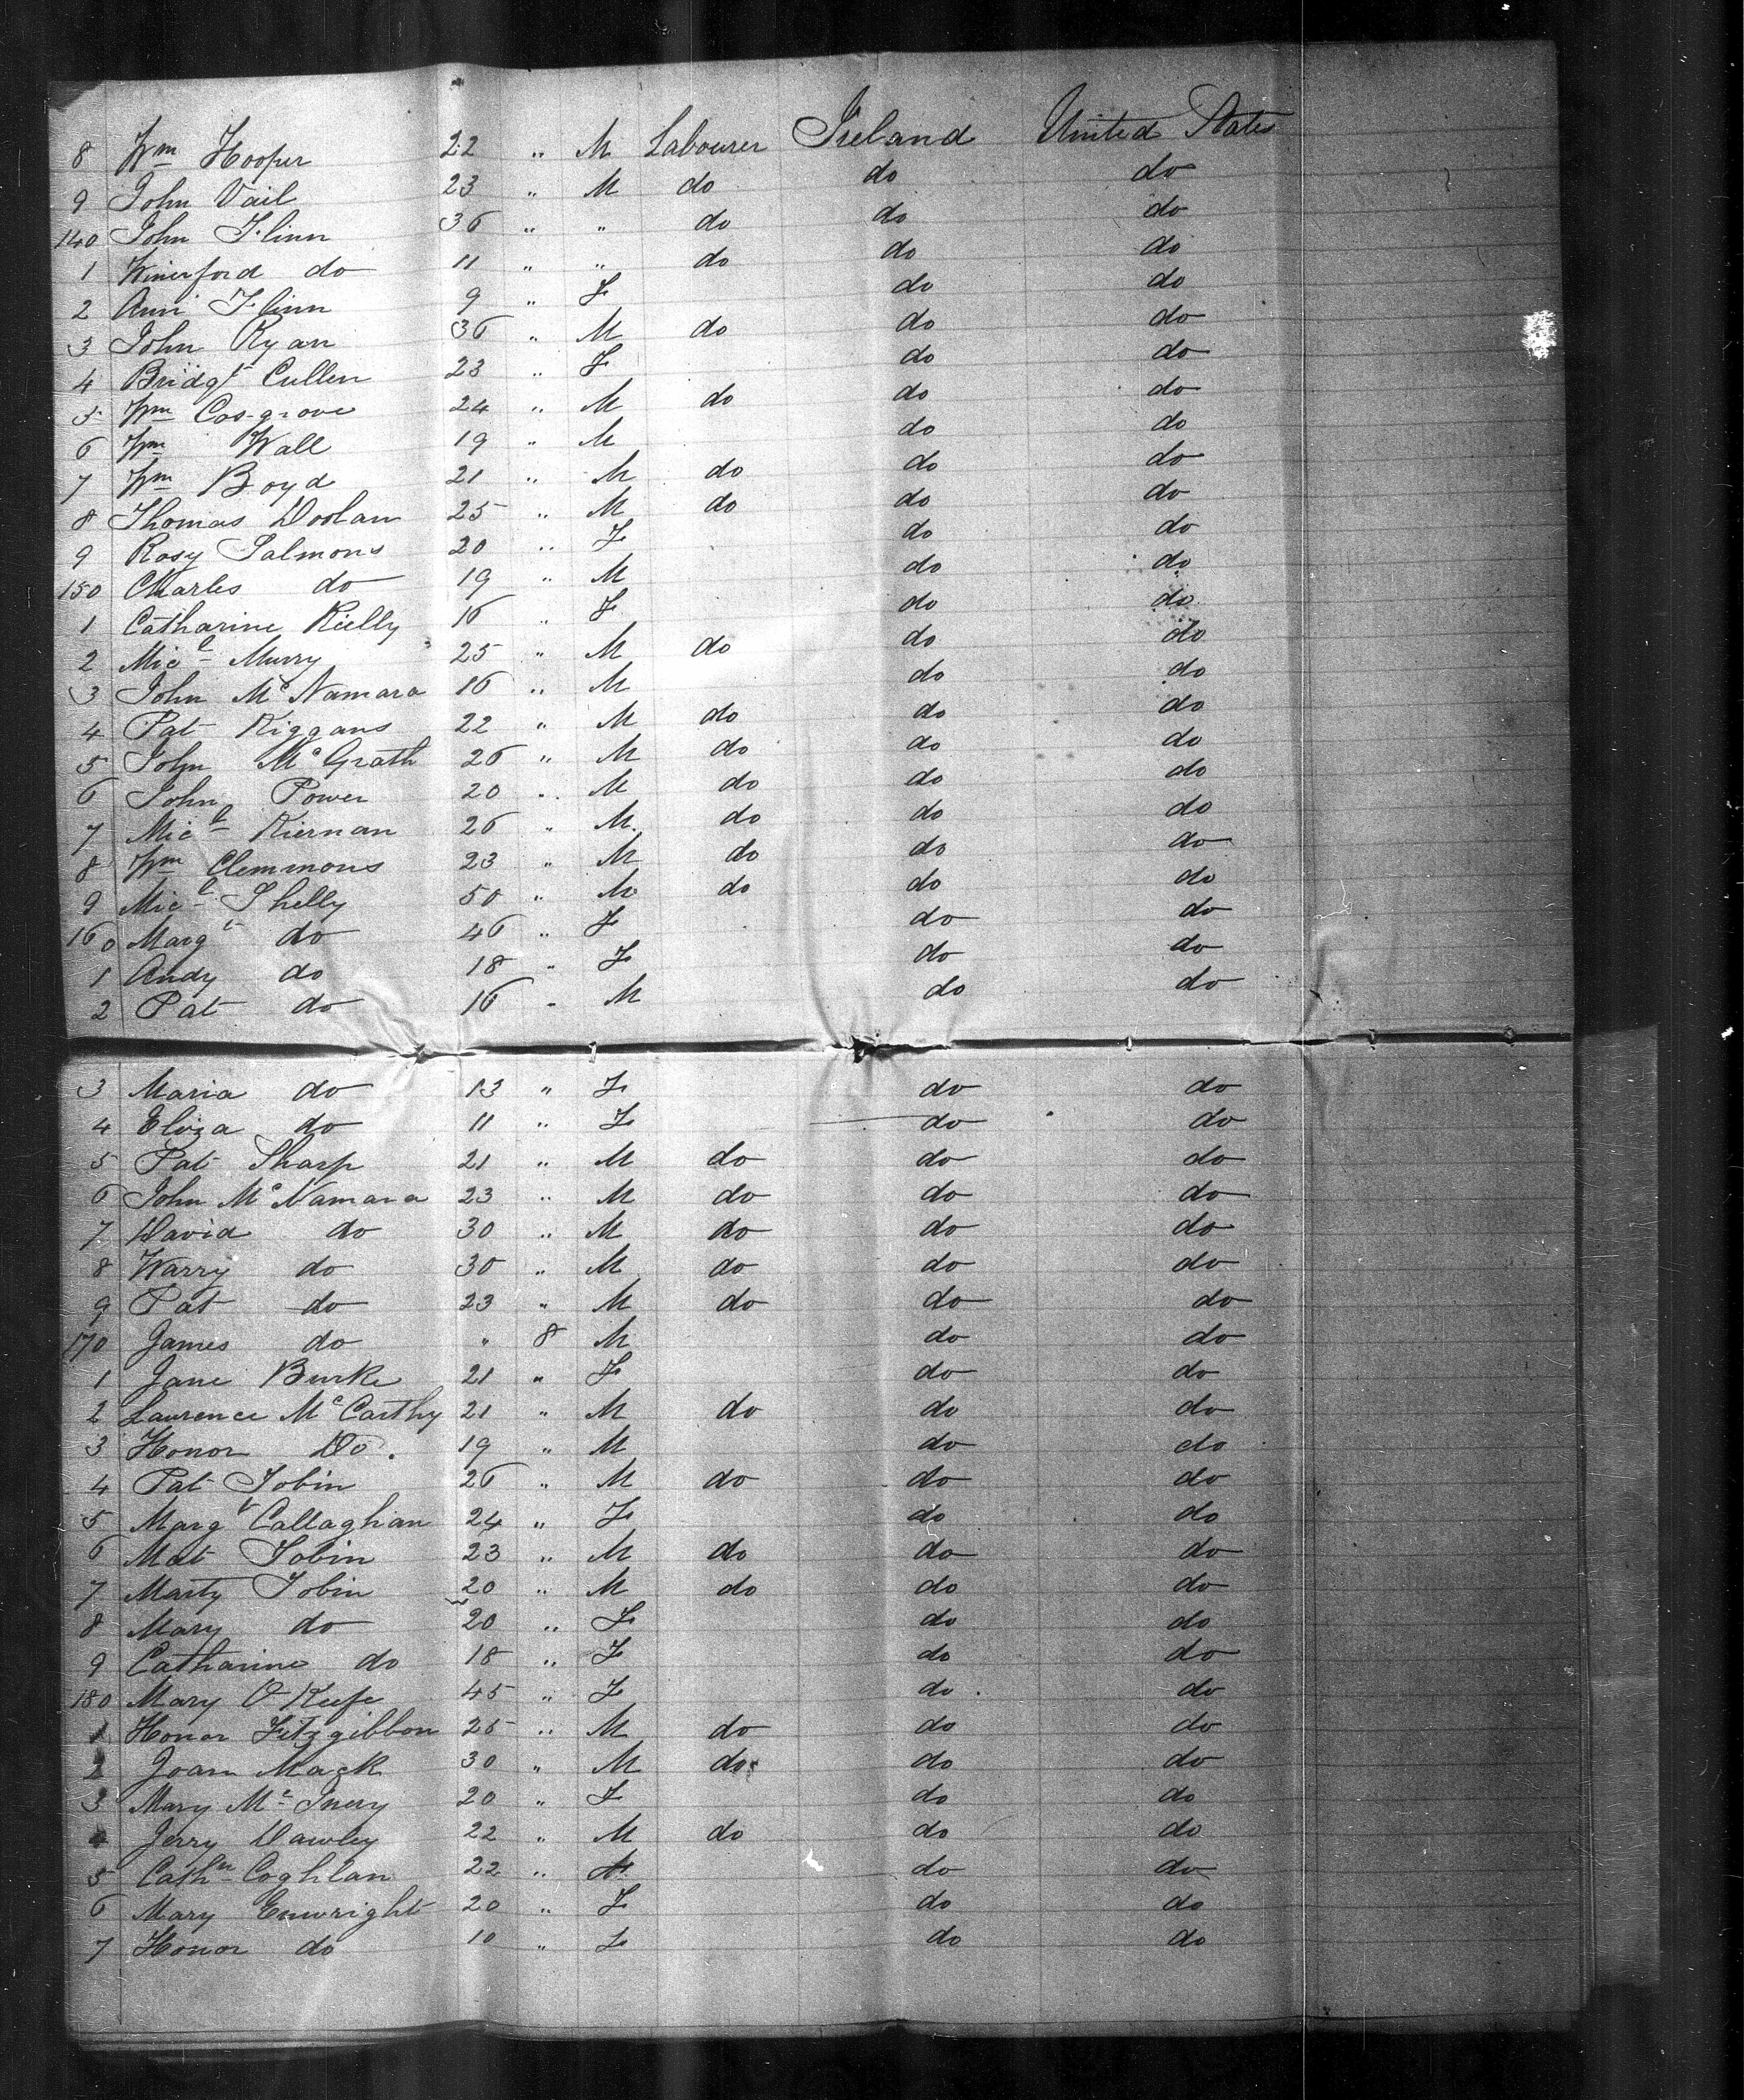 8 Wm Hooper 22 " M Labourer Ireland United States
9 John Vail 23 " M do do do
140 John Flinn 36 " " do do do
1 Winerford do 11 " " do do do
2 Ann Flinn 9 " F do do
3 John Ryan 36 " M do do do
4 Bridgt Cullen 23 " F do do
5 Wm Cosgrove 24 " M do do do
6 Wm Wall 19 " M do do
7 Wm Boyd 21 " M do do do
8 Thomas Doolan 25 " M do do do
9 Rosy Salmons 20 " F do do
150 Charles do 19 " M do do
1 Catharine Rielly 16 " F do do
2 Micl Murry 25 " M do do do
3 John McNamara 16 " M do do
4 Pat Kiggans 22 " M do do do
5 John McGrath 26 " M do do do
6 John Power 20 " M do do do
7 Micl Kiernan 26 " M do do do
8 Wm Clemmons 23 " M do do do
9 Micl Shelly 50 " M do do do
160 Margt do 46 " F do do
1 Andy do 18 " F do do
2 Pat do 16 " M do do
3 Maria do 13 " F do do
4 Eliza do 11 " F do do
5 Pat Sharp 21 " M do do do
6 John McNamara 23 " M do do do
7 David do 30 " M do do do
8 Warry do 30 " M do do do
9 Pat do 23 " M do do do
170 James do " 8 M do do
1 Jane Burke 21 " F do do
2 Laurence McCarthy 21 " M do do do
3 Honor Do. 19 " M do do
4 Pat Tobin 26 " M do do do
5 Margt Callaghan 24 " F do do
6 Mat Tobin 23 " M do do do
7 Marty Tobin 20 " M do do do
8 Mary do 20 " F do do
9 Catharine do 18 " F do do
180 Mary O Keefe 45 " F do do
1 Honor Fitzgibbon 25 " M do do do
2 Joan Mack 30 " M do do do
3 Mary Mc Inery 20 " F do do
4 Jerry Dawley 22 " M do do do
5 Cathn Coghlan 22 " F do do
6 Mary Enwright 20 " F do do
7 Honor do 10 " F do do